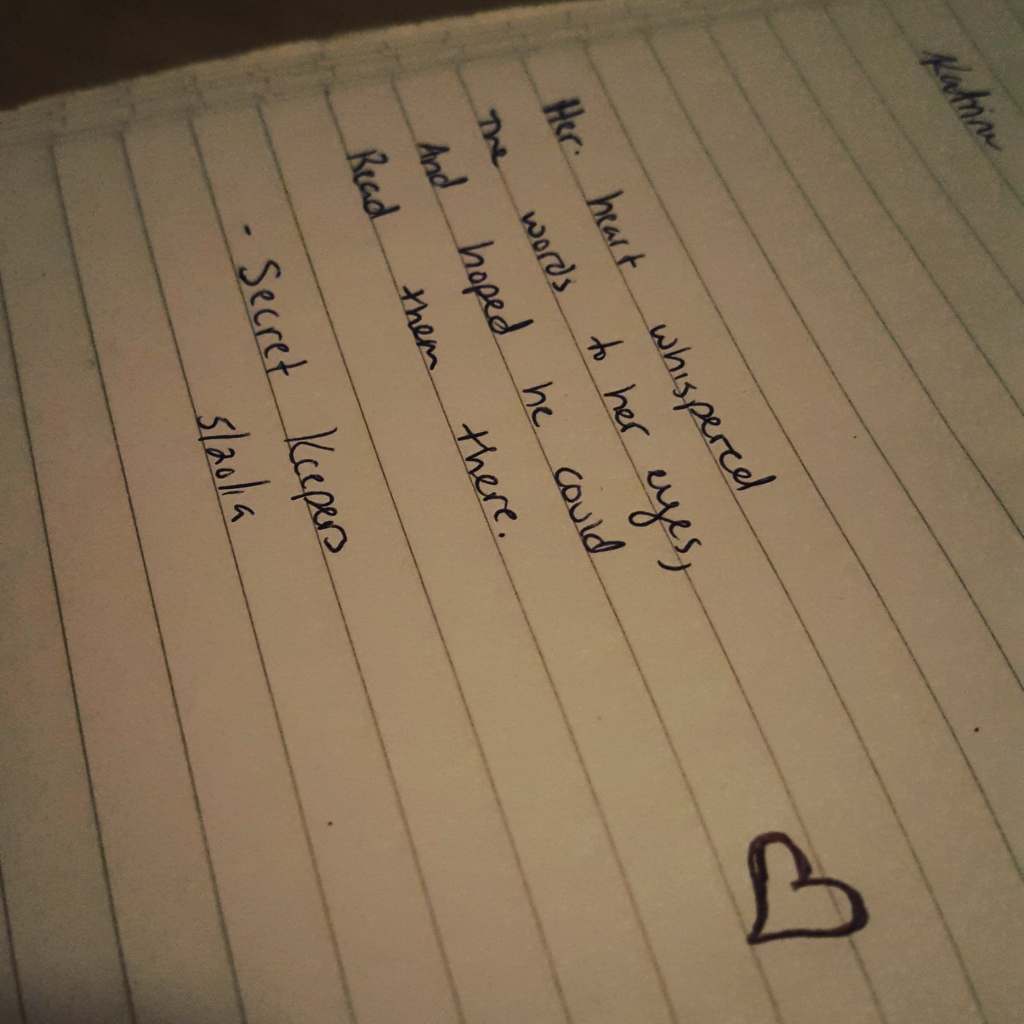 Katrina
Her. heart whispered
The words to her eyes,
And hoped he could
Read them there.
- Secret Keepers